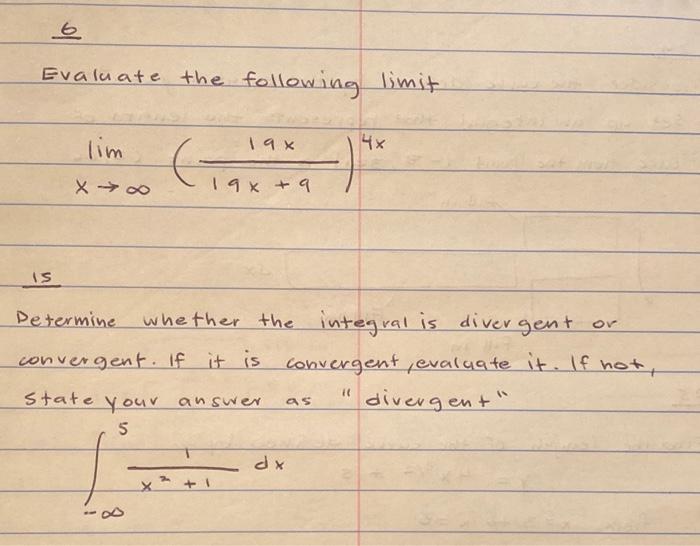 6
Evaluate the following limit
lim x → ∞ (19x / 19x + 9)^4x
15
Determine whether the integral is divergent or
convergent. If it is convergent, evaluate it. If not,
state your answer as "divergent"
∫_-∞^5 1 / x² + 1 dx